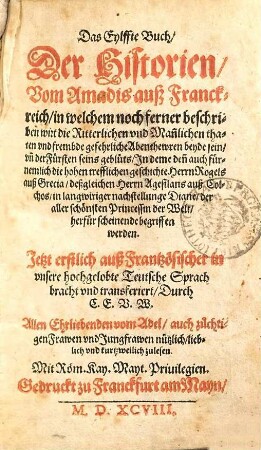 Das Eylffte Buch/
Der Historien/
Vom Amadis auß Franck-
reich/in welchem noch ferner beschri-
ben wirt die Ritterlichen vnd Mañlichen tha-
ten vnd frembde gefehrliche Abenthewren beyde sein/
vñ der Fürsten seins geblüts/In deme deñ auch für-
nemlich die hohen trefflichen geschichte/Herrn Rogels
auß Grecia/deßgleichen Herrn Agesilans auß Col-
chos/in langwiriger nachstellunge Diane/der
aller schönsten Princessin der Welt/
herfür scheinende begriffen
werden.
Jetzt erstlich auß Frantzösischer in
vnsere hochgelobte Teutsche Sprach
bracht vnd transferiert/Durch
C. E. V. W.
Allen Ehrliebenden vom Adel/auch züchti-
gen Frawen vnd Jungfrawen nützlich/lieb-
lich vnd kurtzweilich zulesen.
Mit Röm. Kay. Mayt. Priuilegien.
Gedruckt zu Franckfurt am Mayn/
M. D. XCVIII.